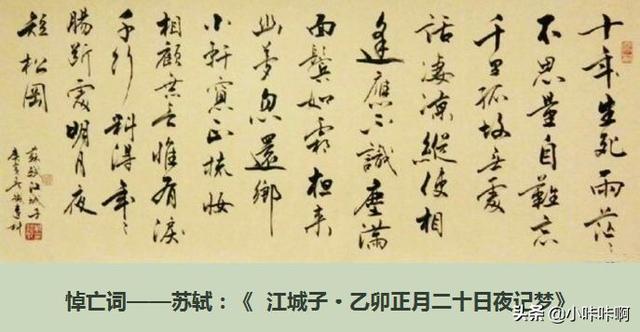 十年生死兩茫々
不思量自難忘
千里孤坟無處
話凄涼縱使相
逢應不識塵滿
面鬓如霜夜来
幽夢忽還鄉
小軒窗正梳妝
相顧無言惟有淚
千行料得年々
腸斷處明月夜
短松岡
蘇軾江城子
悼亡词——苏轼：《 江城子·乙卯正月二十日夜记梦》
头条 @小咔咔啊